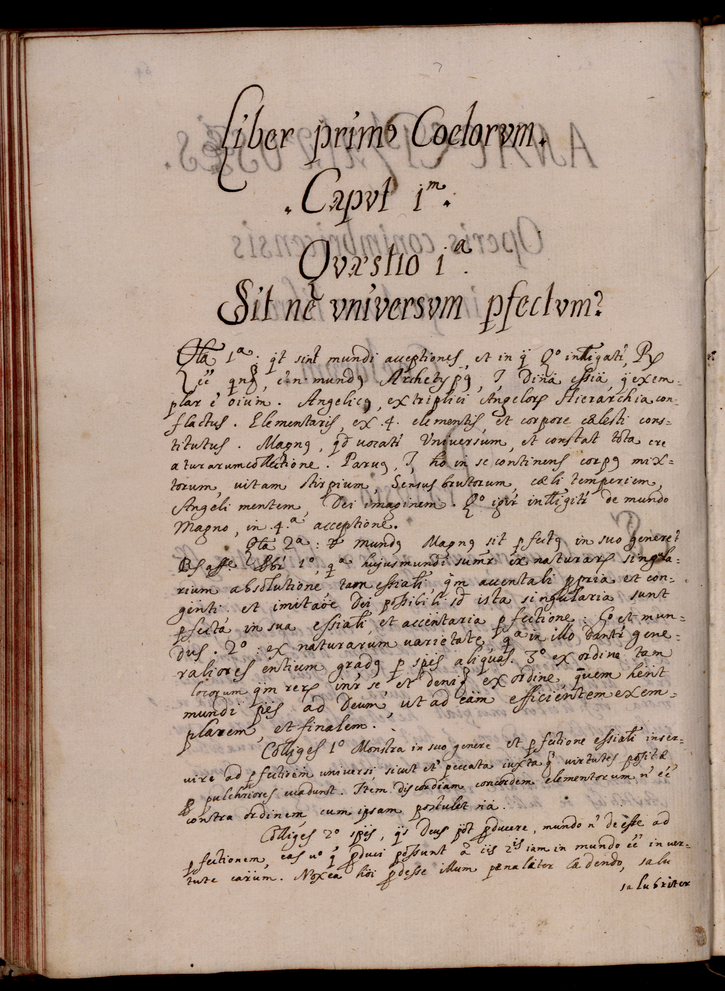 Liber primo Coelorvm.
. Capvt 1m.
Qvæstio 1a.
Sit nē vniversvm pfectvm?
1a: qt sint mundi acceptiones, et in
mundus Archetypus, exem-
plar ē oium. Angelicus, ex triplici Angelorum Hierarchia con-
flactus. Elementaris, ex .4. elementis, et corpore cælesti cons-
titutus. Magnus, qd vocati Vniversum, et constat tota cre
aturarum collectione. Parvus, ho in se continens corpus mix-
torum, vitam stirpium, sensus brutorum, cæli temperiem,
Angeli mentem, Dei imaginem. de mundo
Magno, in 4.a acceptione.
2a: mundus Magnus sit pfectus in suo genere?
1o, hujusmundi ex naturarum singula-
rium absolutione tam essiali, qm accentali ppria et con-
genti et Dei possibili sd ista singularia sunt
pfecta in sua essiali et accentaria pfectione: Go est mun-
dus. 2o: ex naturarum varietate, qa in illo gene-
raliores entium gradus p spes aliquas. 3o ex ordine tam
locorum qm rerum inr se et denique ex ordine, quem hent
mundi ptes ad Deum, ut ad eam efficientem exem-
plarem, et finalem.
Colliges 1o Monstra in suo genere et pfectione essiali inser-
vire ad pfectionem universi sicut et peccata iuxta virtutes posita
pulchriores evadunt. Item discordiam concordem elementorum n ēē
contra ordinem cum ipsam postulet na.
Colliges 2o spes, qs Deus pot pducere, mundo n deesse ad
pfectionem, eas pduci possunt a iis iam in mundo ēē in ver-
tute earum. Noxea hoi pdesse illum penaliter lædendo, salu
salubriter